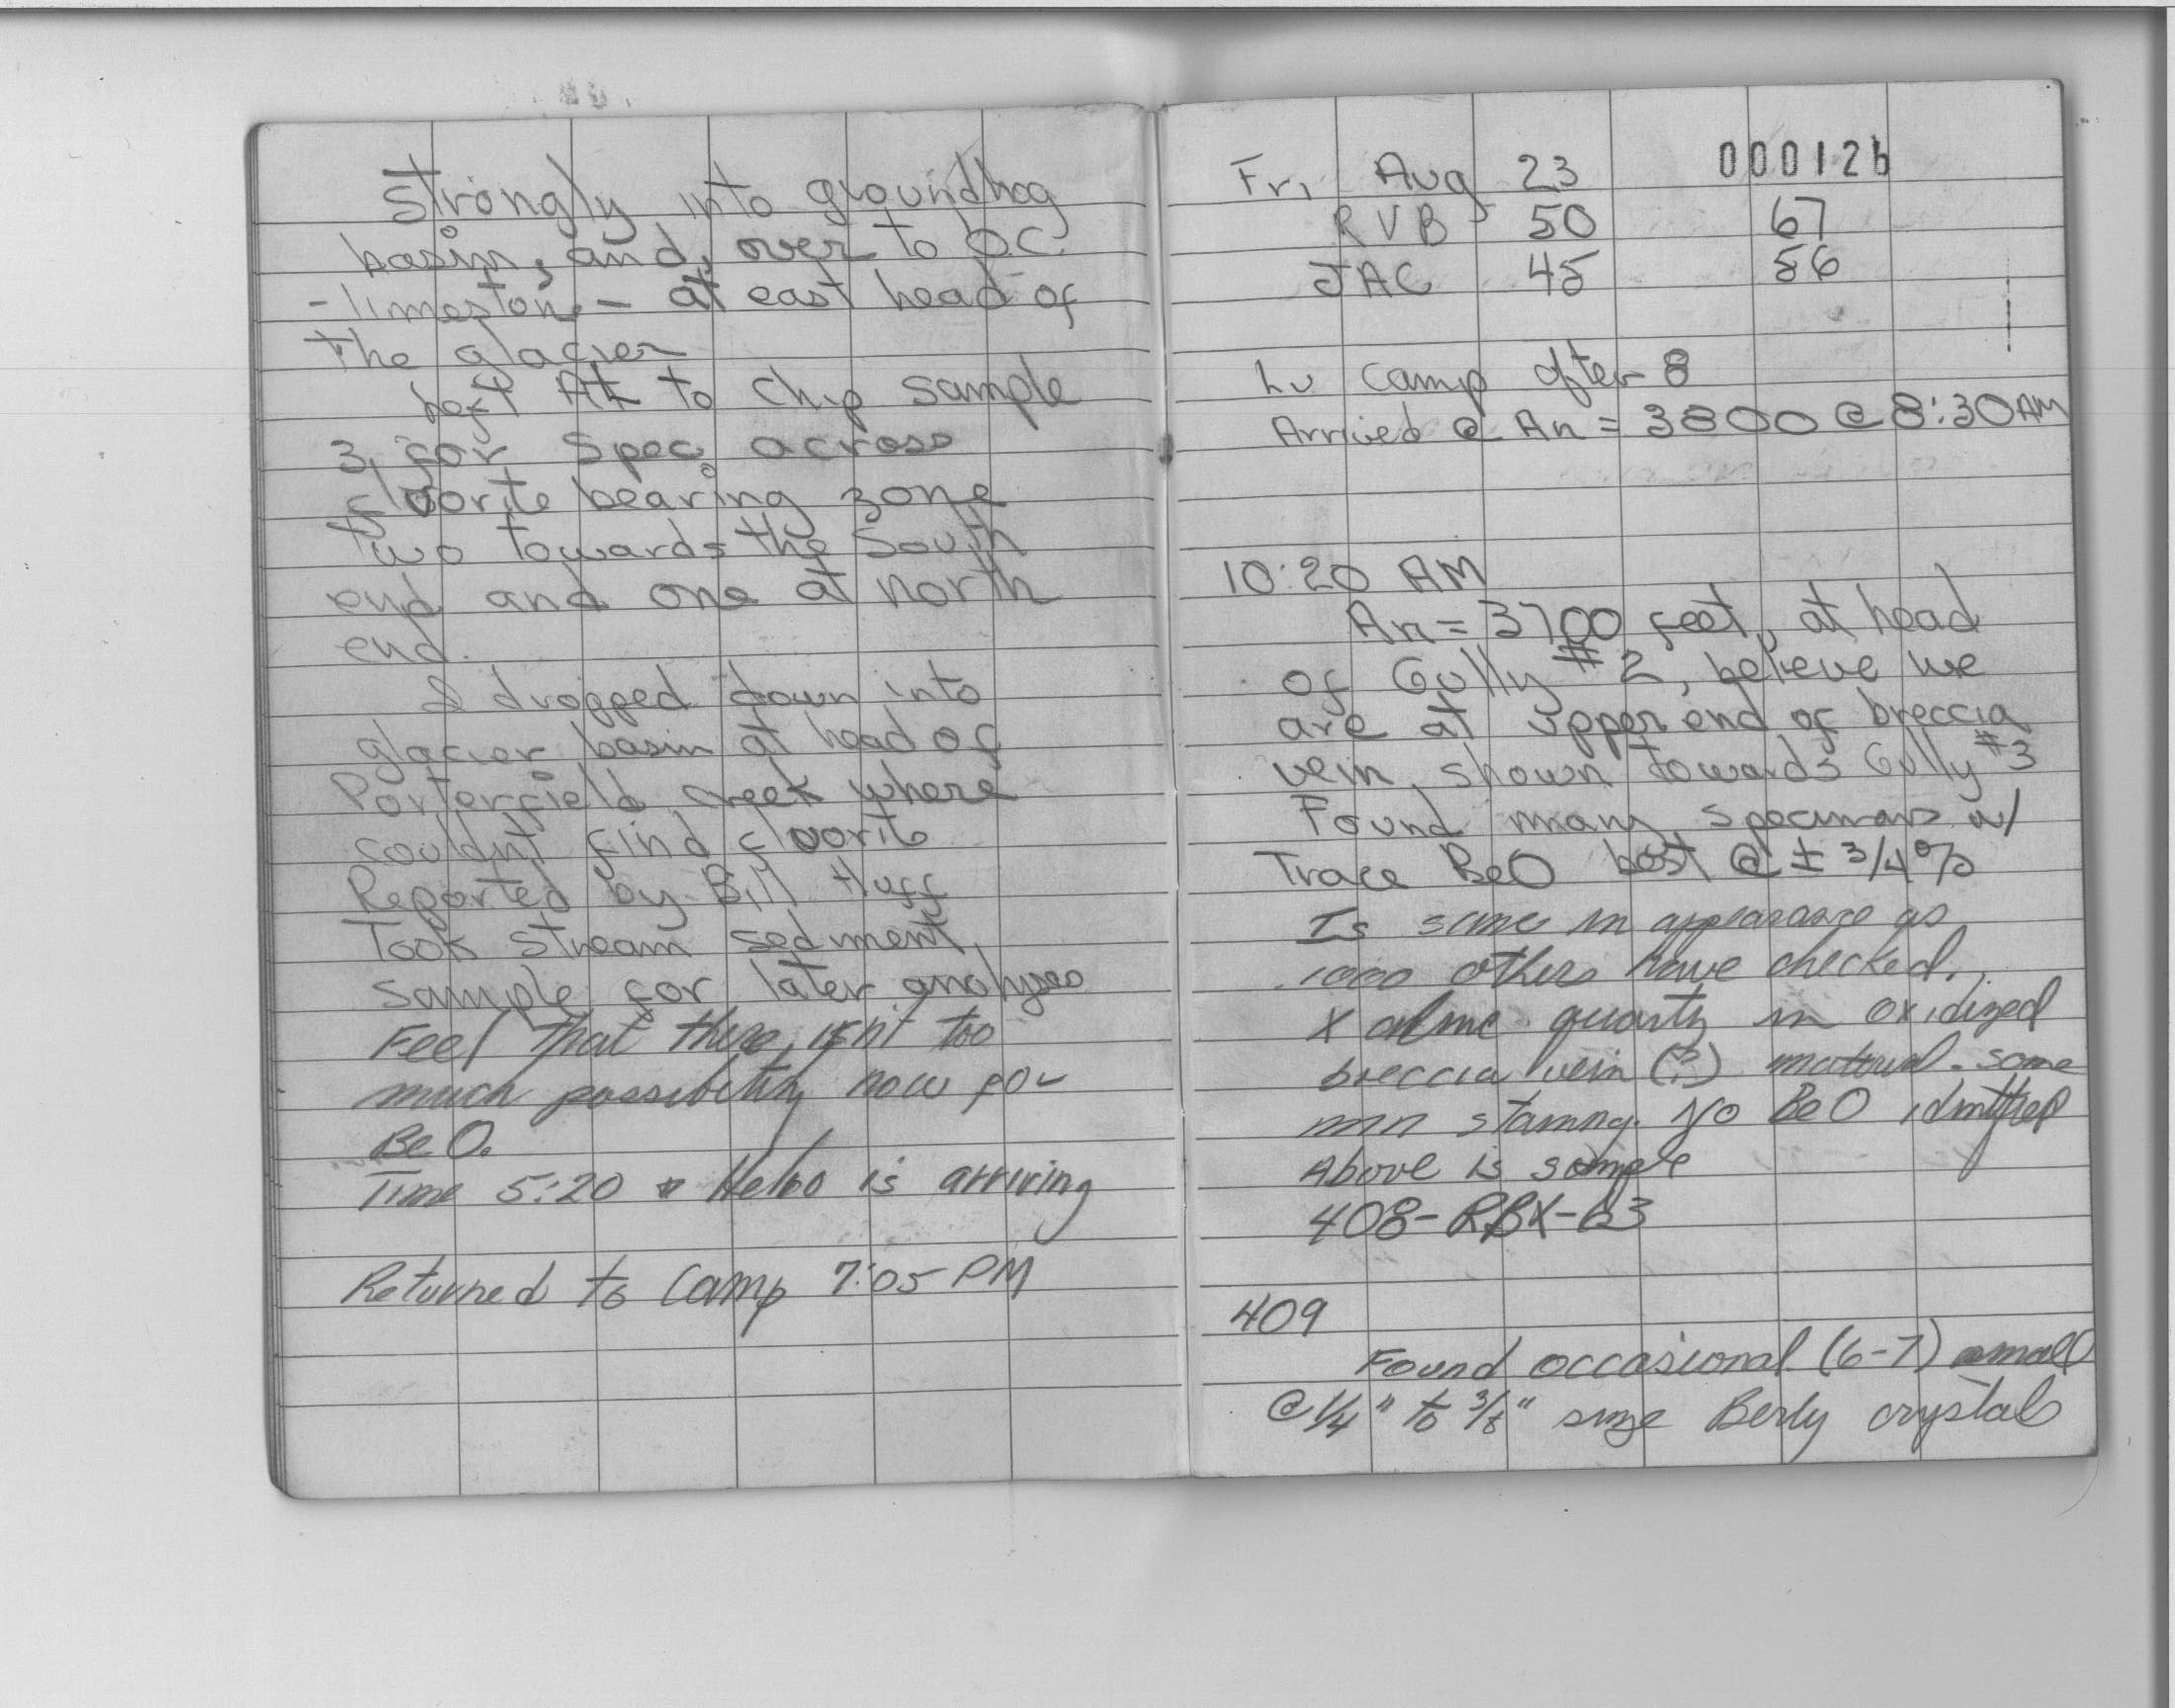 Strongly into groundhog
basin, and, over to O.C.
- limestone - at east head of
the glacier
Left At to chip sample
3, for Spec across
fluorite bearing zone
two towards the South
end and one at north
end.
I dropped down into
glacier basin at head of
Porterfield creek where
couldnt find fluorite
Reported by Bill Huff
Took stream sediment
sample for later analyses
Feel that there isn't too
much possibility now for
BeO.
Time 5:20 Helio is arriving
Returned to Camp 7:05 PM
Fri Aug 23 000126
RVB 50 67
JAC 45 56
Lv Camp after 8
Arrived @ An = 3800 @ 8:30 AM
10:20 AM
An = 3700 feet, at head
of Gully #2, believe we
are at upper end of breccia
vein, shown towards Gully #3
Found many specimans w/
Trace BeO best @ ± 3/4%
Is same in appearance as
1000 others have checked.
X quartz in oxidized
breccia vein (?) material - some
mn staining. No BeO
Above is sample
408-RBX-63
409
Found occasional (6-7) small
@ 1/4" to 3/8" size Berly crystals